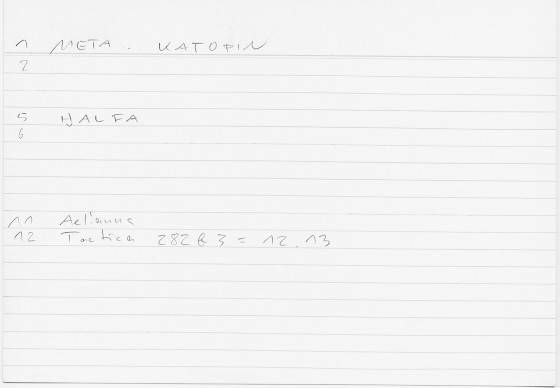 1 META . KATOPIN
2
5 HJALFA
6
11 Aelianus
12 Tactica 282 & 3 = 12.13